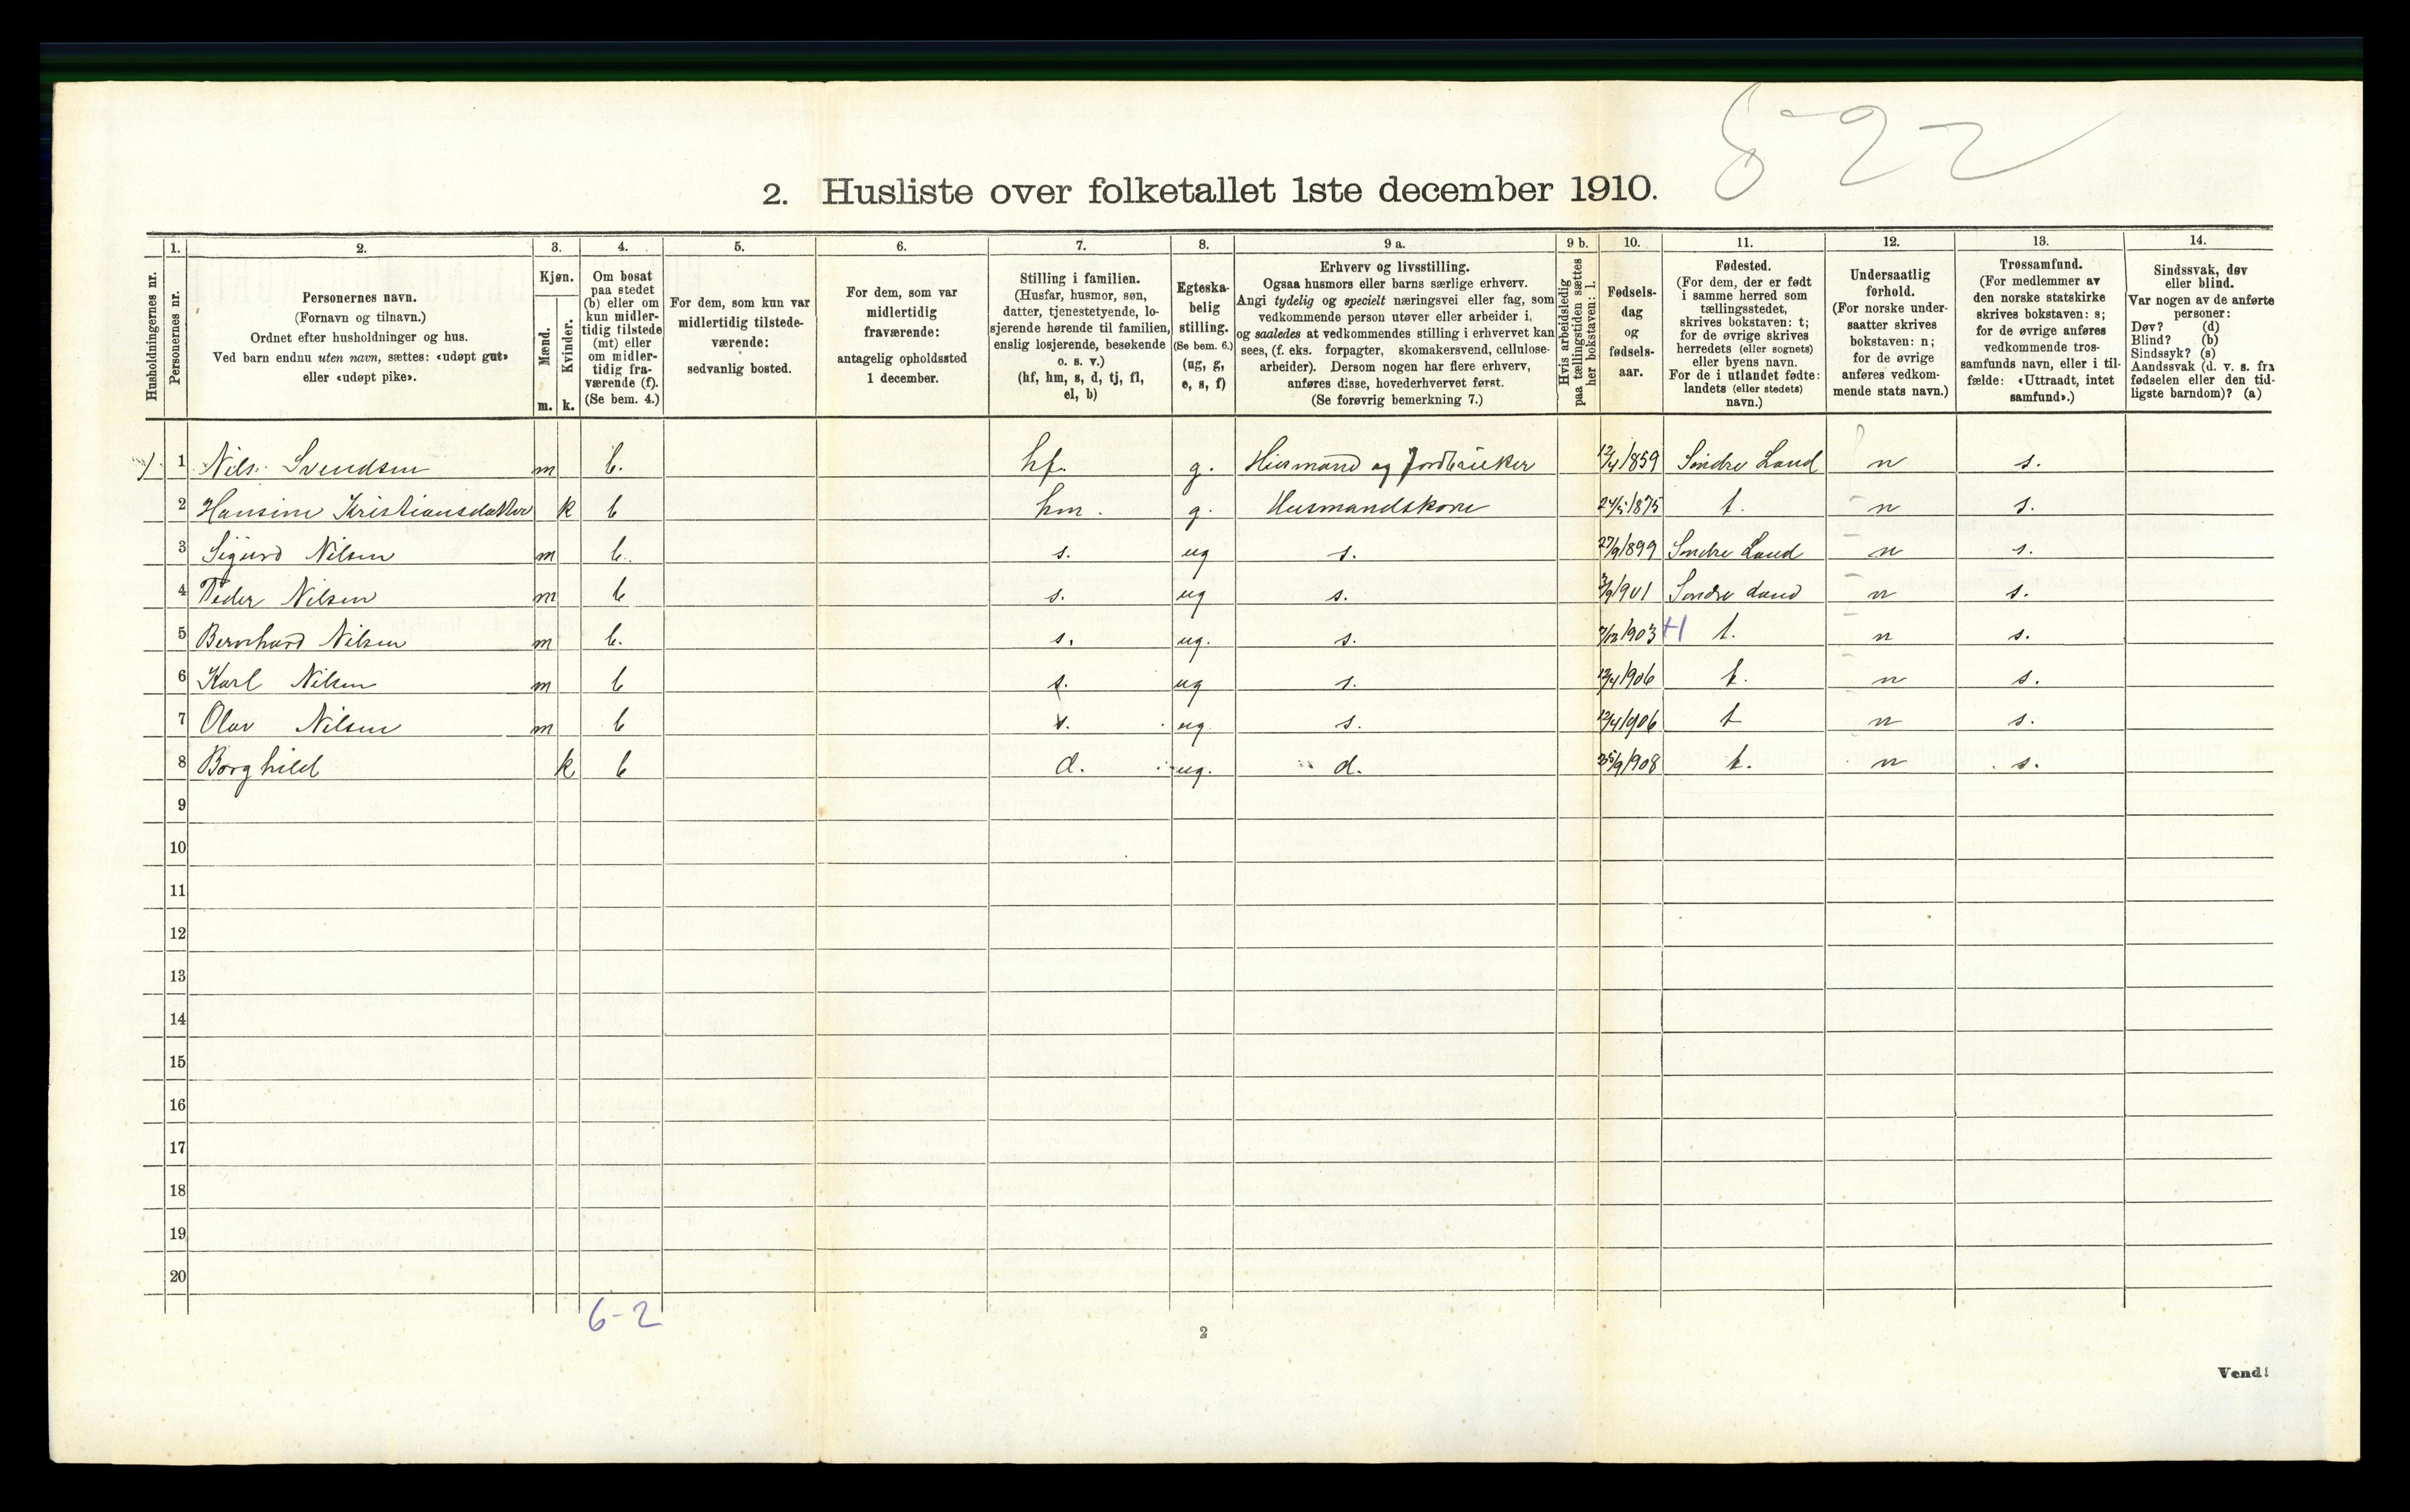 8-22
2. Husliste over folketallet 1ste december 1910.
1. 2. 3. 4. 5. 6. 7. 8. 9 a. 9 b. 10. 11. 12. 13. 14.
Husholdningernes nr.
Personernes nr.
Personernes navn.
(Fornavn og tilnavn.)
Ordnet efter husholdninger og hus.
Ved barn endnu uten navn, sættes: «udøpt gut»
eller «udøpt pike».
Kjøn.
Mænd.
Kvinder.
m. k.
Om bosat
paa stedet
(b) eller om
kun midler-
tidig tilstede
(mt) eller
om midler-
tidig fra-
værende (f).
(Se bem. 4.)
For dem, som kun var
midlertidig tilstede-
værende:
sedvanlig bosted.
For dem, som var
midlertidig
fraværende:
antagelig opholdssted
1 december.
Stilling i familien.
(Husfar, husmor, søn,
datter, tjenestetyende, lo-
sjerende hørende til familien,
enslig losjerende, besøkende
o. s. v.)
(hf, hm, s, d, tj, fl,
el, b)
Egteska-
belig
stilling.
(Se bem. 6.)
(ug, g,
e, s, f)
Erhverv og livsstilling.
Ogsaa husmors eller barns særlige erhverv.
Angi tydelig og specielt næringsvei eller fag, som
vedkommende person utøver eller arbeider i,
og saaledes at vedkommendes stilling i erhvervet kan
sees, (f. eks. forpagter, skomakersvend, cellulose-
arbeider). Dersom nogen har flere erhverv,
anføres disse, hovederhvervet først.
(Se forøvrig bemerkning 7.)
Hvis arbeidsledig
paa tællingstiden sættes
her bokstaven: l.
Fødsels-
dag
og
fødsels-
aar.
Fødested.
(For dem, der er født
i samme herred som
tællingsstedet,
skrives bokstaven: t;
for de øvrige skrives
herredets (eller sognets)
eller byens navn.
For de i utlandet fødte:
landets (eller stedets)
navn.)
Undersaatlig
forhold.
(For norske under-
saatter skrives
bokstaven: n;
for de øvrige
anføres vedkom-
mende stats navn.)
Trossamfund.
(For medlemmer av
den norske statskirke
skrives bokstaven: s;
for de øvrige anføres
vedkommende tros-
samfunds navn, eller i til-
fælde: «Uttraadt, intet
samfund».)
Sindssvak, døv
eller blind.
Var nogen av de anførte
personer:
Døv? (d)
Blind? (b)
Sindssyk? (s)
Aandssvak (d. v. s. fra
fødselen eller den tid-
ligste barndom)? (a)
1 Nils Svendsen m b. hf. g. Husmand og Jordbruker 12/4 1859 Søndre Land n s.
2 Hansine Kristiansdatter k b hm. g. Husmandskone 24/5 1875 t. n s.
3 Sigurd Nilsen m b. s. ug s. 27/9 1899 Søndre Land n s.
4 Peder Nilsen m b s. ug s. 3/9 1901 Søndre Land n s.
5 Bernhard Nilsen m b. s. ug. s. 7/12 1903 t. n s.
6 Karl Nilsen m b s. ug s. 12/4 1906 t. n s.
7 Olav Nilsen m b s. ug. s. 12/4 1906 t n s.
8 Borghild k b d. ug. d. 25/9 1908 t. n s.
9
10
11
12
13
14
15
16
17
18
19
20
6-2
2
Vend!